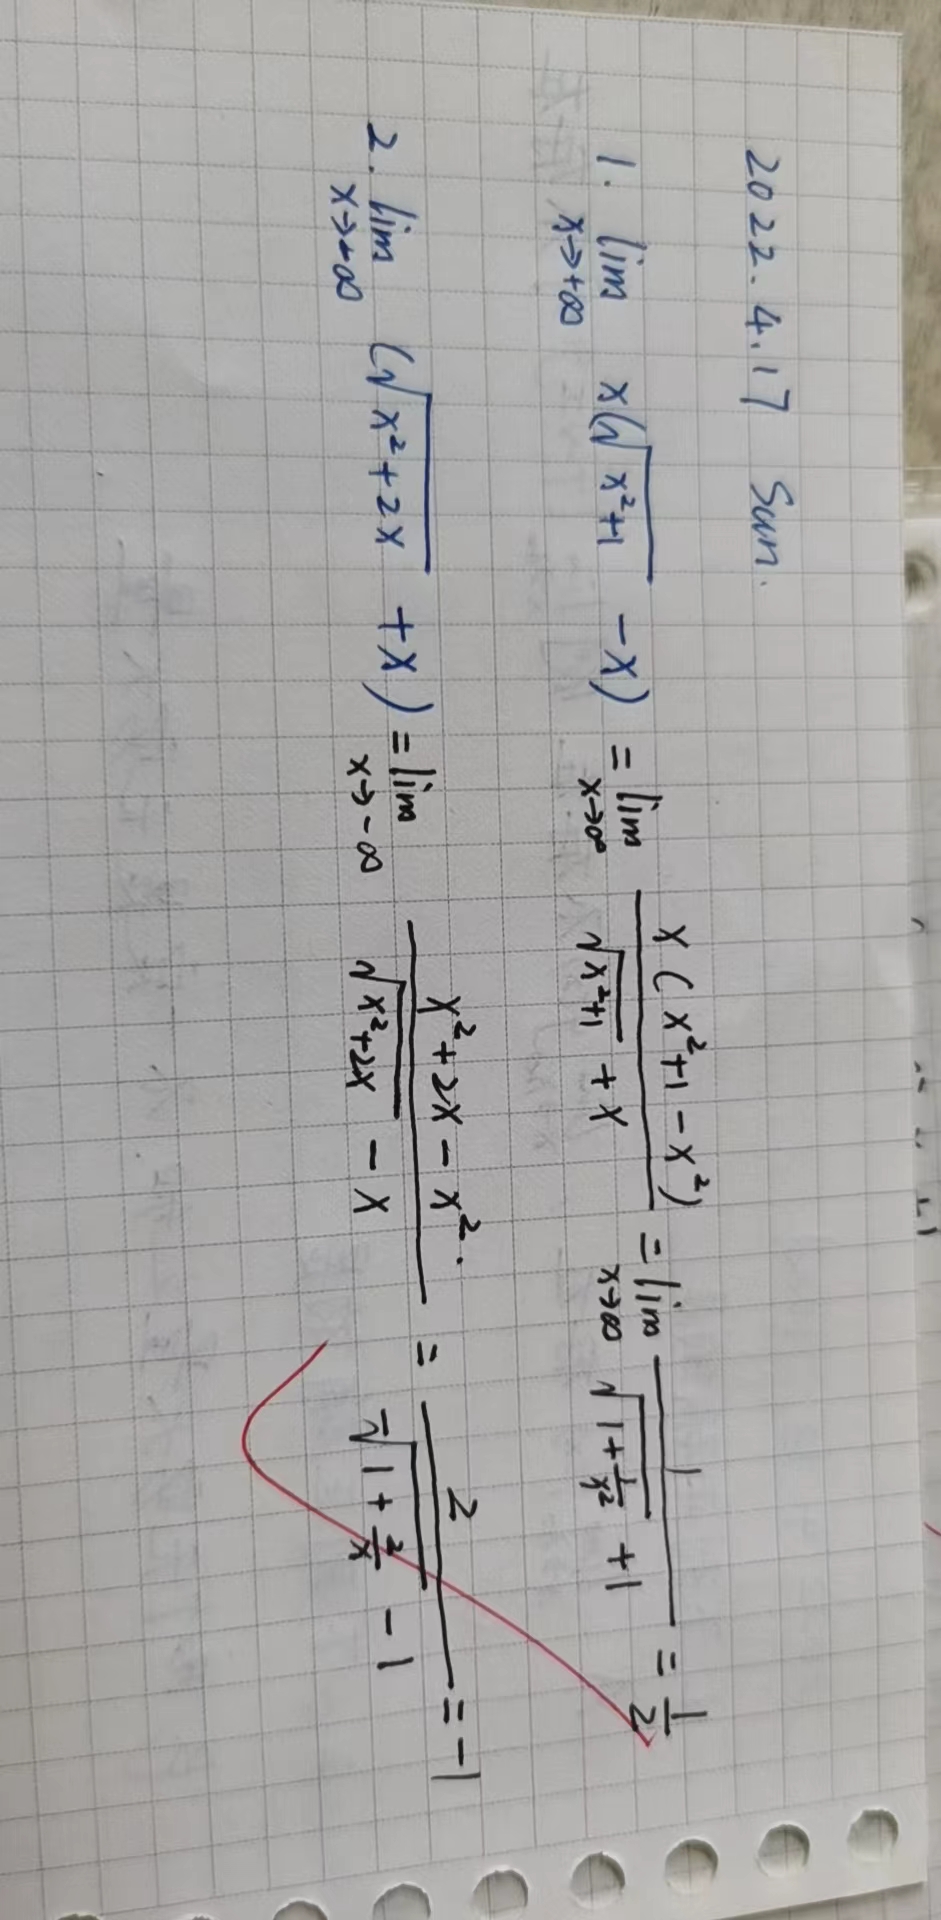 2022.4.17 Sun.
1. lim x→+∞ x(√(x²+1) - x) = lim x→∞ x(x²+1-x²)/(√(x²+1) + x) = lim x→∞ 1/(√(1+1/x²) + 1) = 1/2
2. lim x→-∞ (√(x²+2x) + x) = lim x→-∞ (x²+2x-x².)/(√(x²+2x) - x) = 2/(-√(1+2/x) - 1) = -1